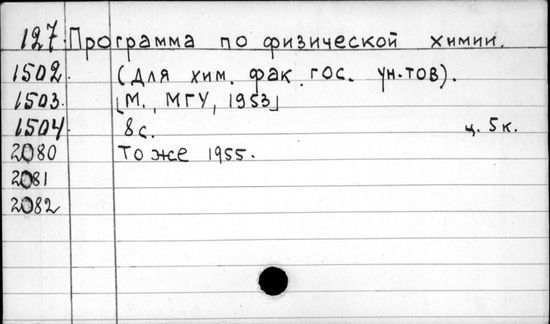 127. Программа по физической химии.
1502. (Для хим. фак. гос. ун-тов).
1503. [М., МГУ, 1953]
1504 8 с. ц. 5 к.
2080 То же 1955.
2081
2082